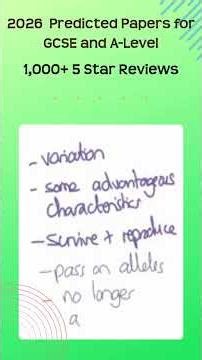 2026 Predicted Papers for
GCSE and A-Level
1,000+ 5 Star Reviews
- variation
- some advantageous
characteristics
- survive + reproduce
- pass on alleles
- no longer
a